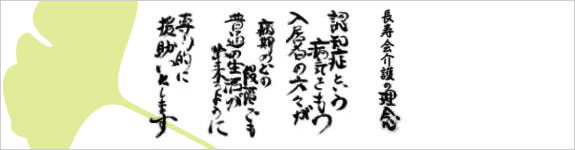 長寿会介護の理念
認知症という
病気をもつ
入居者の方々が
病期のどの
段階でも
普通の生活が
出来るように
専門的に
援助いたします